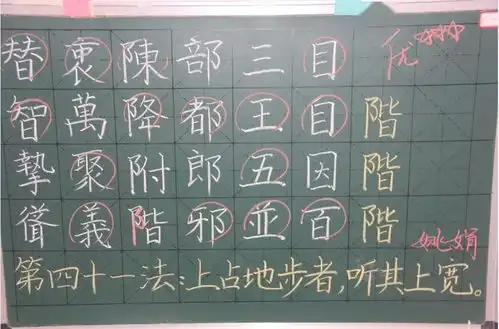 替衷陳部三目 优
智萬降都王自階
摯聚附郎五因階
聳義階邪並百階
姚娟
第四十一法:上占地步者,听其上宽。